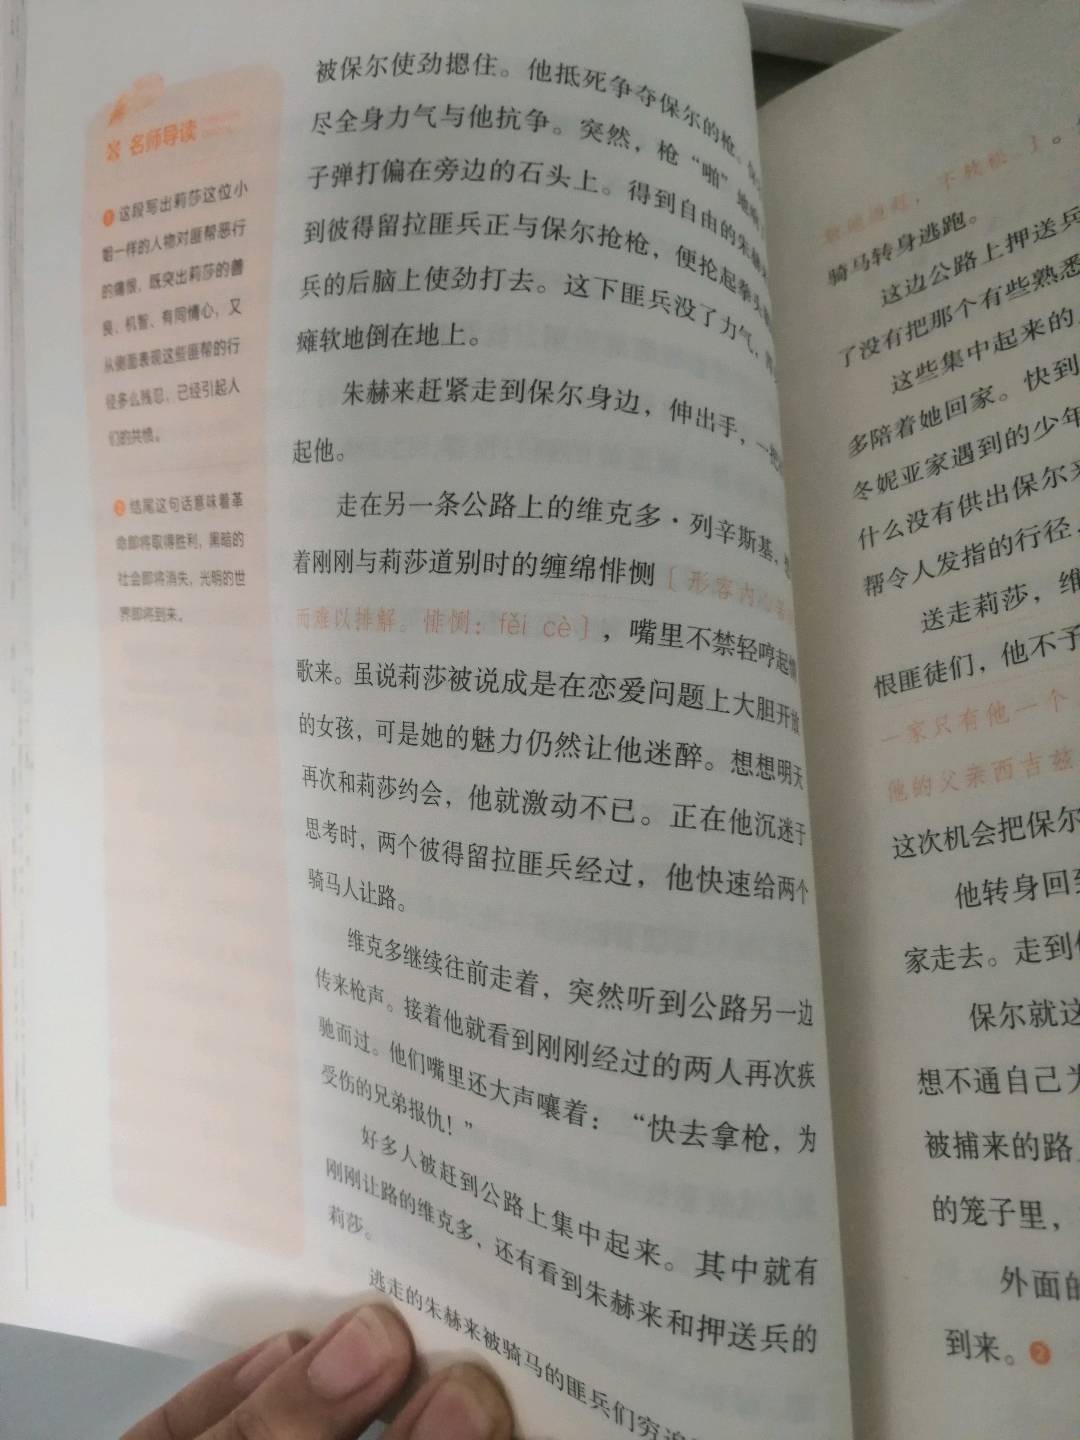 名师导读
1 这段写出莉莎这位小
姐一样的人物对匪帮恶行
的痛恨，既突出莉莎的善
良、机智、有同情心，又
从侧面表现这些匪帮的行
径多么残忍，已经引起人
们的共愤。
2 结尾这句话意味着革
命即将取得胜利，黑暗的
社会即将消失，光明的世
界即将到来。
被保尔使劲摁住。他抵死争夺保尔的枪。
尽全身力气与他抗争。突然，枪“啪”地
子弹打偏在旁边的石头上。得到自由的朱赫
到彼得留拉匪兵正与保尔抢枪，便抡起拳头
兵的后脑上使劲打去。这下匪兵没了力气，
瘫软地倒在地上。
朱赫来赶紧走到保尔身边，伸出手，一把
起他。
走在另一条公路上的维克多·列辛斯基，
着刚刚与莉莎道别时的缠绵悱恻［形容内心
而难以排解。悱恻：fěi cè］，嘴里不禁轻哼起情
歌来。虽说莉莎被说成是在恋爱问题上大胆开放
的女孩，可是她的魅力仍然让他迷醉。想想明天
再次和莉莎约会，他就激动不已。正在他沉迷于
思考时，两个彼得留拉匪兵经过，他快速给两个
骑马人让路。
维克多继续往前走着，突然听到公路另一边
传来枪声。接着他就看到刚刚经过的两人再次疾
驰而过。他们嘴里还大声嚷着：“快去拿枪，为
受伤的兄弟报仇！”
好多人被赶到公路上集中起来。其中就有
刚刚让路的维克多，还有看到朱赫来和押送兵的
莉莎。
逃走的朱赫来被骑马的匪兵们穷追
，不放松］。
骑马转身逃跑。
这边公路上押送兵
了没有把那个有些熟悉
这些集中起来的
多陪着她回家。快到
冬妮亚家遇到的少年
什么没有供出保尔
帮令人发指的行径，
送走莉莎，维
恨匪徒们，他不予
一家只有他一个
他的父亲西吉兹
这次机会把保尔
他转身回到
家走去。走到
保尔就这
想不通自己为
被捕来的路
的笼子里，
外面的
到来。2